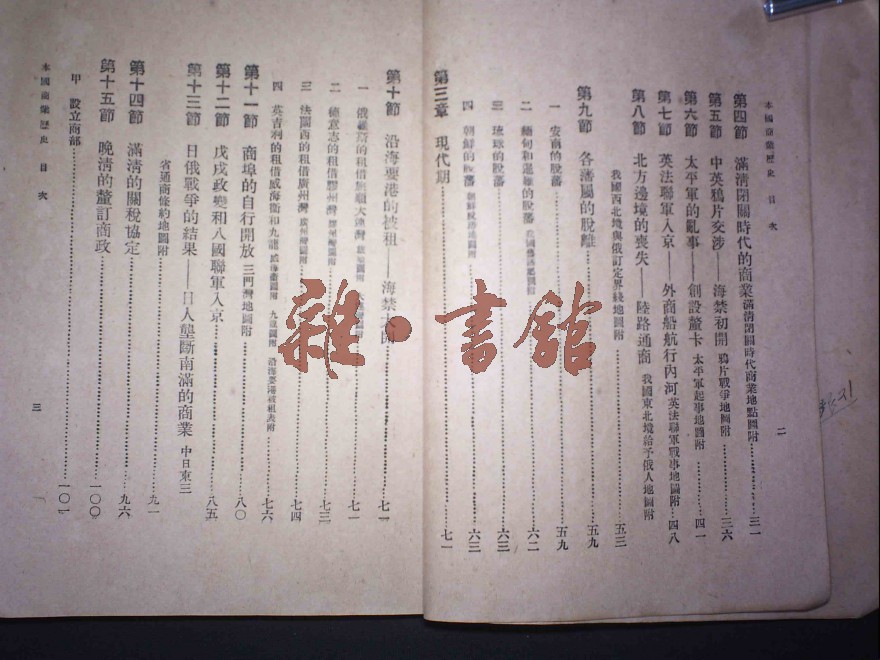 本國商業歷史 目次
二
第四節 滿清閉關時代的商業 滿清閉關時代商業地點圖附……三一
第五節 中英鴉片交涉——海禁初開 鴉片戰爭地圖附……三六
第六節 太平軍的亂事——創設釐卡 太平軍起事地圖附……四一
第七節 英法聯軍入京——外商船航行內河 英法聯軍戰事地圖附……四八
第八節 北方邊境的喪失——陸路通商 我國東北境給予俄人地圖附
我國西北境與俄訂定界綫地圖附……五三
第九節 各藩屬的脫離……五九
一 安南的脫藩……五九
二 緬甸和暹羅的脫藩……六二
三 琉球的脫藩……六三
四 朝鮮的脫藩……六三
第三章 現代期……七一
第十節 沿海要港的被租——海禁……七一
一 俄羅斯的租借旅順大連灣……七一
二 德意志的租借膠州灣 膠州灣圖附……七三
三 法蘭西的租借廣州灣 廣州灣圖附……七四
四 英吉利的租借威海衛和九龍 威海衛圖附 九龍圖附 沿海要港被租表附……七六
第十一節 商埠的自行開放 三門灣地圖附……八〇
第十二節 戊戌政變和八國聯軍入京……八五
第十三節 日俄戰爭的結果——日人壟斷南滿的商業 中日東三
省通商條約地圖附……九一
第十四節 滿清的關稅協定……九六
第十五節 晚清的釐訂商政……一〇〇
甲 設立商部……一〇一
本國商業歷史 目次
三
雜·書館